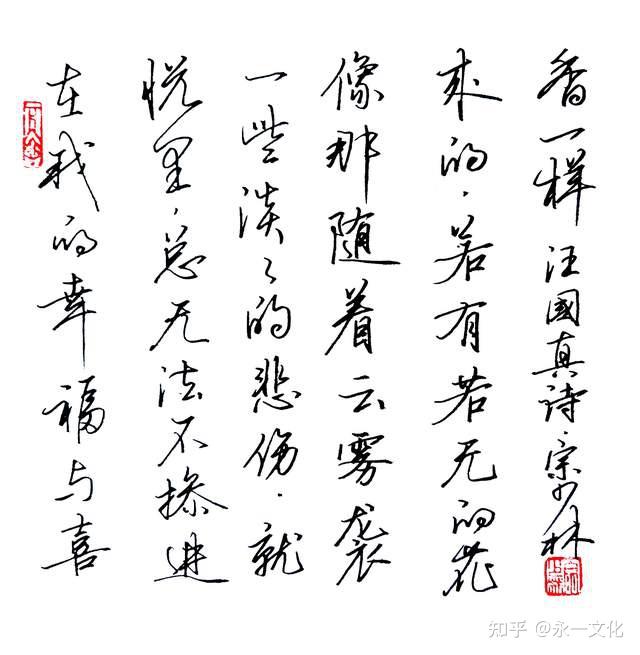 在我的幸福与喜
悦里，总无法不掺进
一些淡々的悲伤，就
像那随着云雾袭
来的，若有若无的花
香一样 汪國真诗·宗少林
知乎 @永一文化